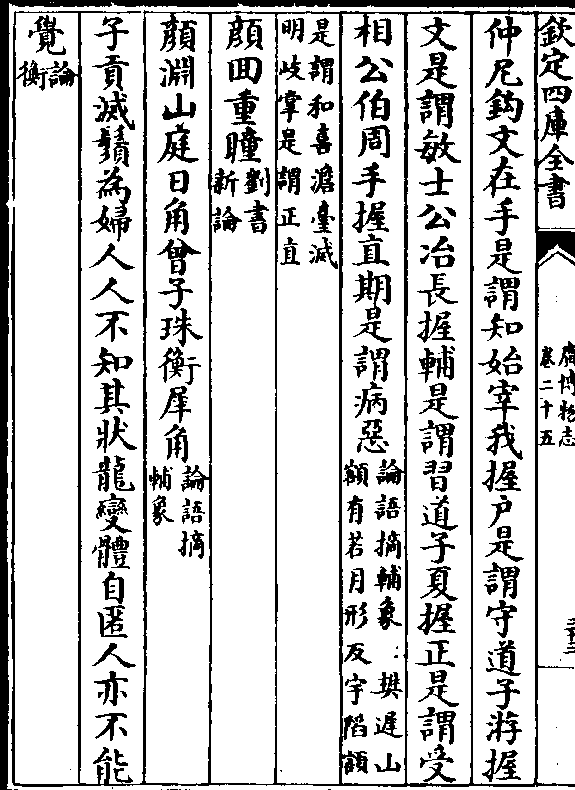 欽定四庫全書
廣博物志
卷二十五
仲尼鈎文在手是謂知始宰我握户是謂守道子游握
文是謂敏士公冶長握輔是謂習道子夏握正是謂受
相公伯周手握直期是謂病惡
論語摘輔象樊遲山
額有若月形反宇陷額
是謂和喜澹臺滅
明歧掌是謂正直
顔回重瞳
劉書
新論
顔淵山庭日角曾子珠衡犀角
論語摘
輔象
子貢滅鬚為婦人人不知其狀龍變體自匿人亦不能
覺
論
衡